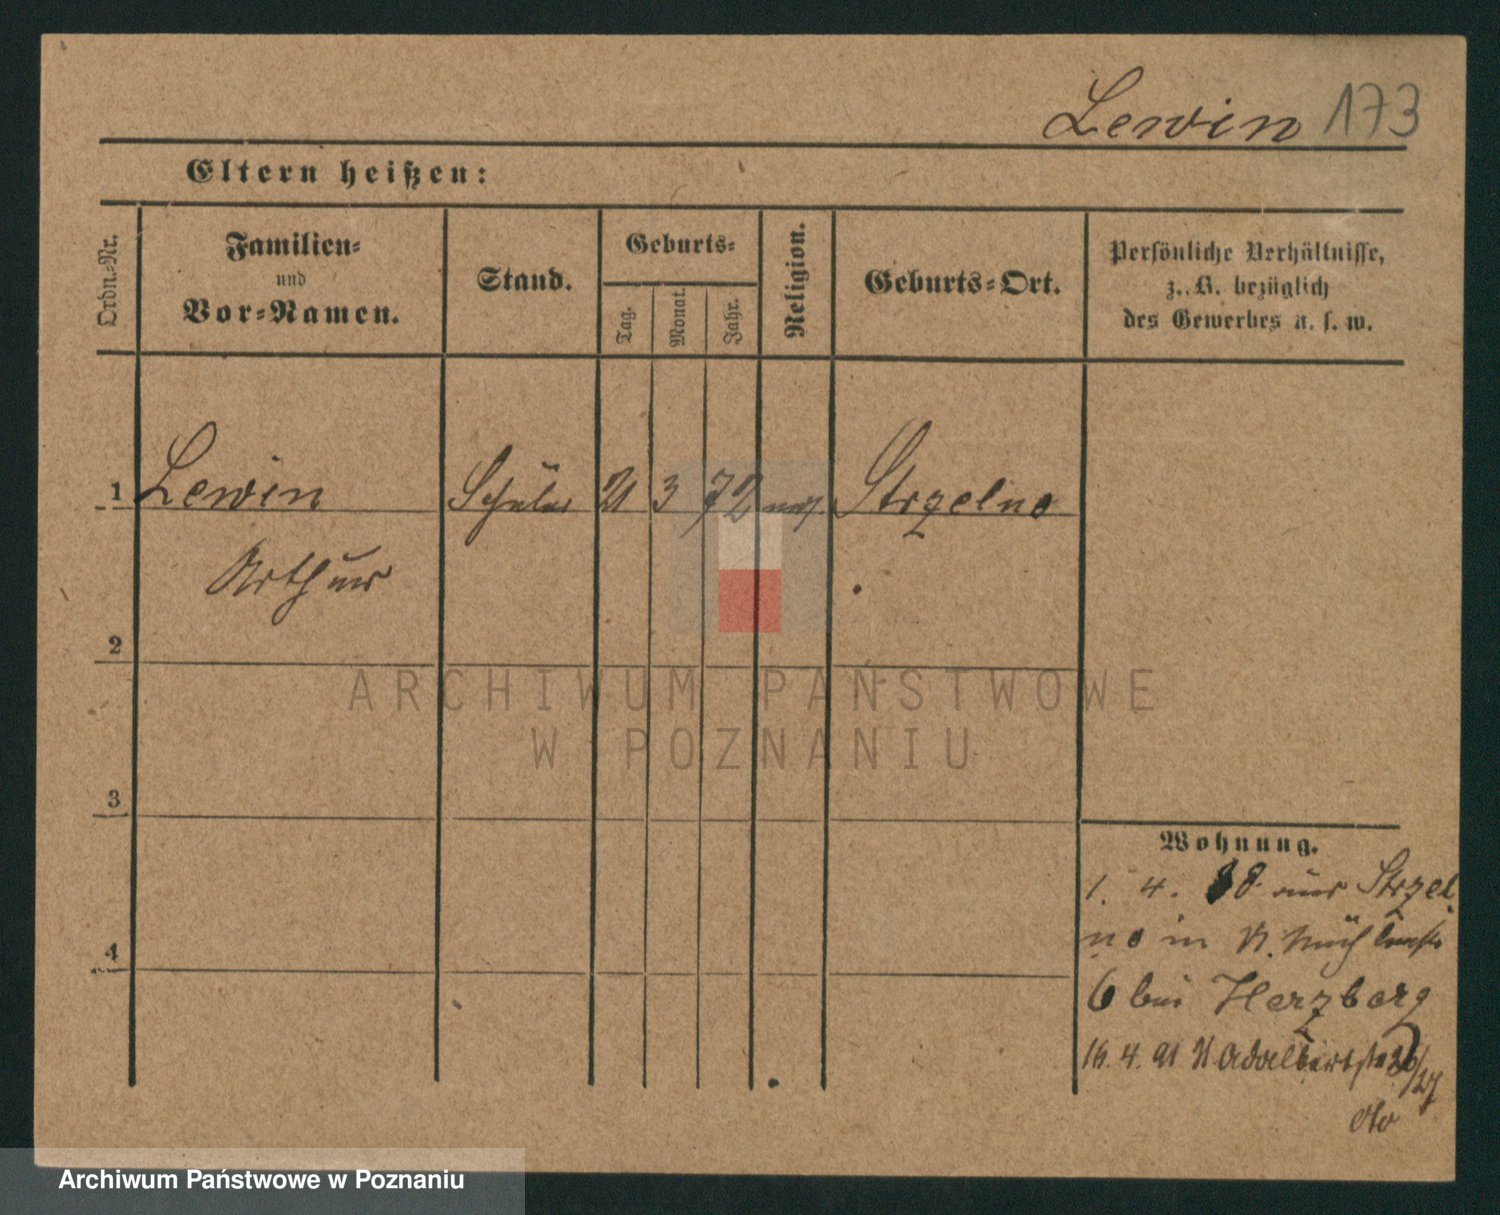 Lewin 173
Eltern heißen:
Ordn.-Nr.
Familien-
und
Vor-Namen.
Stand.
Geburts-
Tag.
Monat.
Jahr.
Religion.
Geburts-Ort.
Persönliche Verhältnisse,
z. B. bezüglich
des Gewerbes u. s. w.
1 Lewin Schüler 21 3 72 mos Strzelno
Arthur
2
3
4
Wohnung.
1. 4. 88 aus Strzel
no in
6 bei Herzberg
16. 4. 91 Adalbertstr
ARCHIWUM PAŃSTWOWE
W POZNANIU
Archiwum Państwowe w Poznaniu